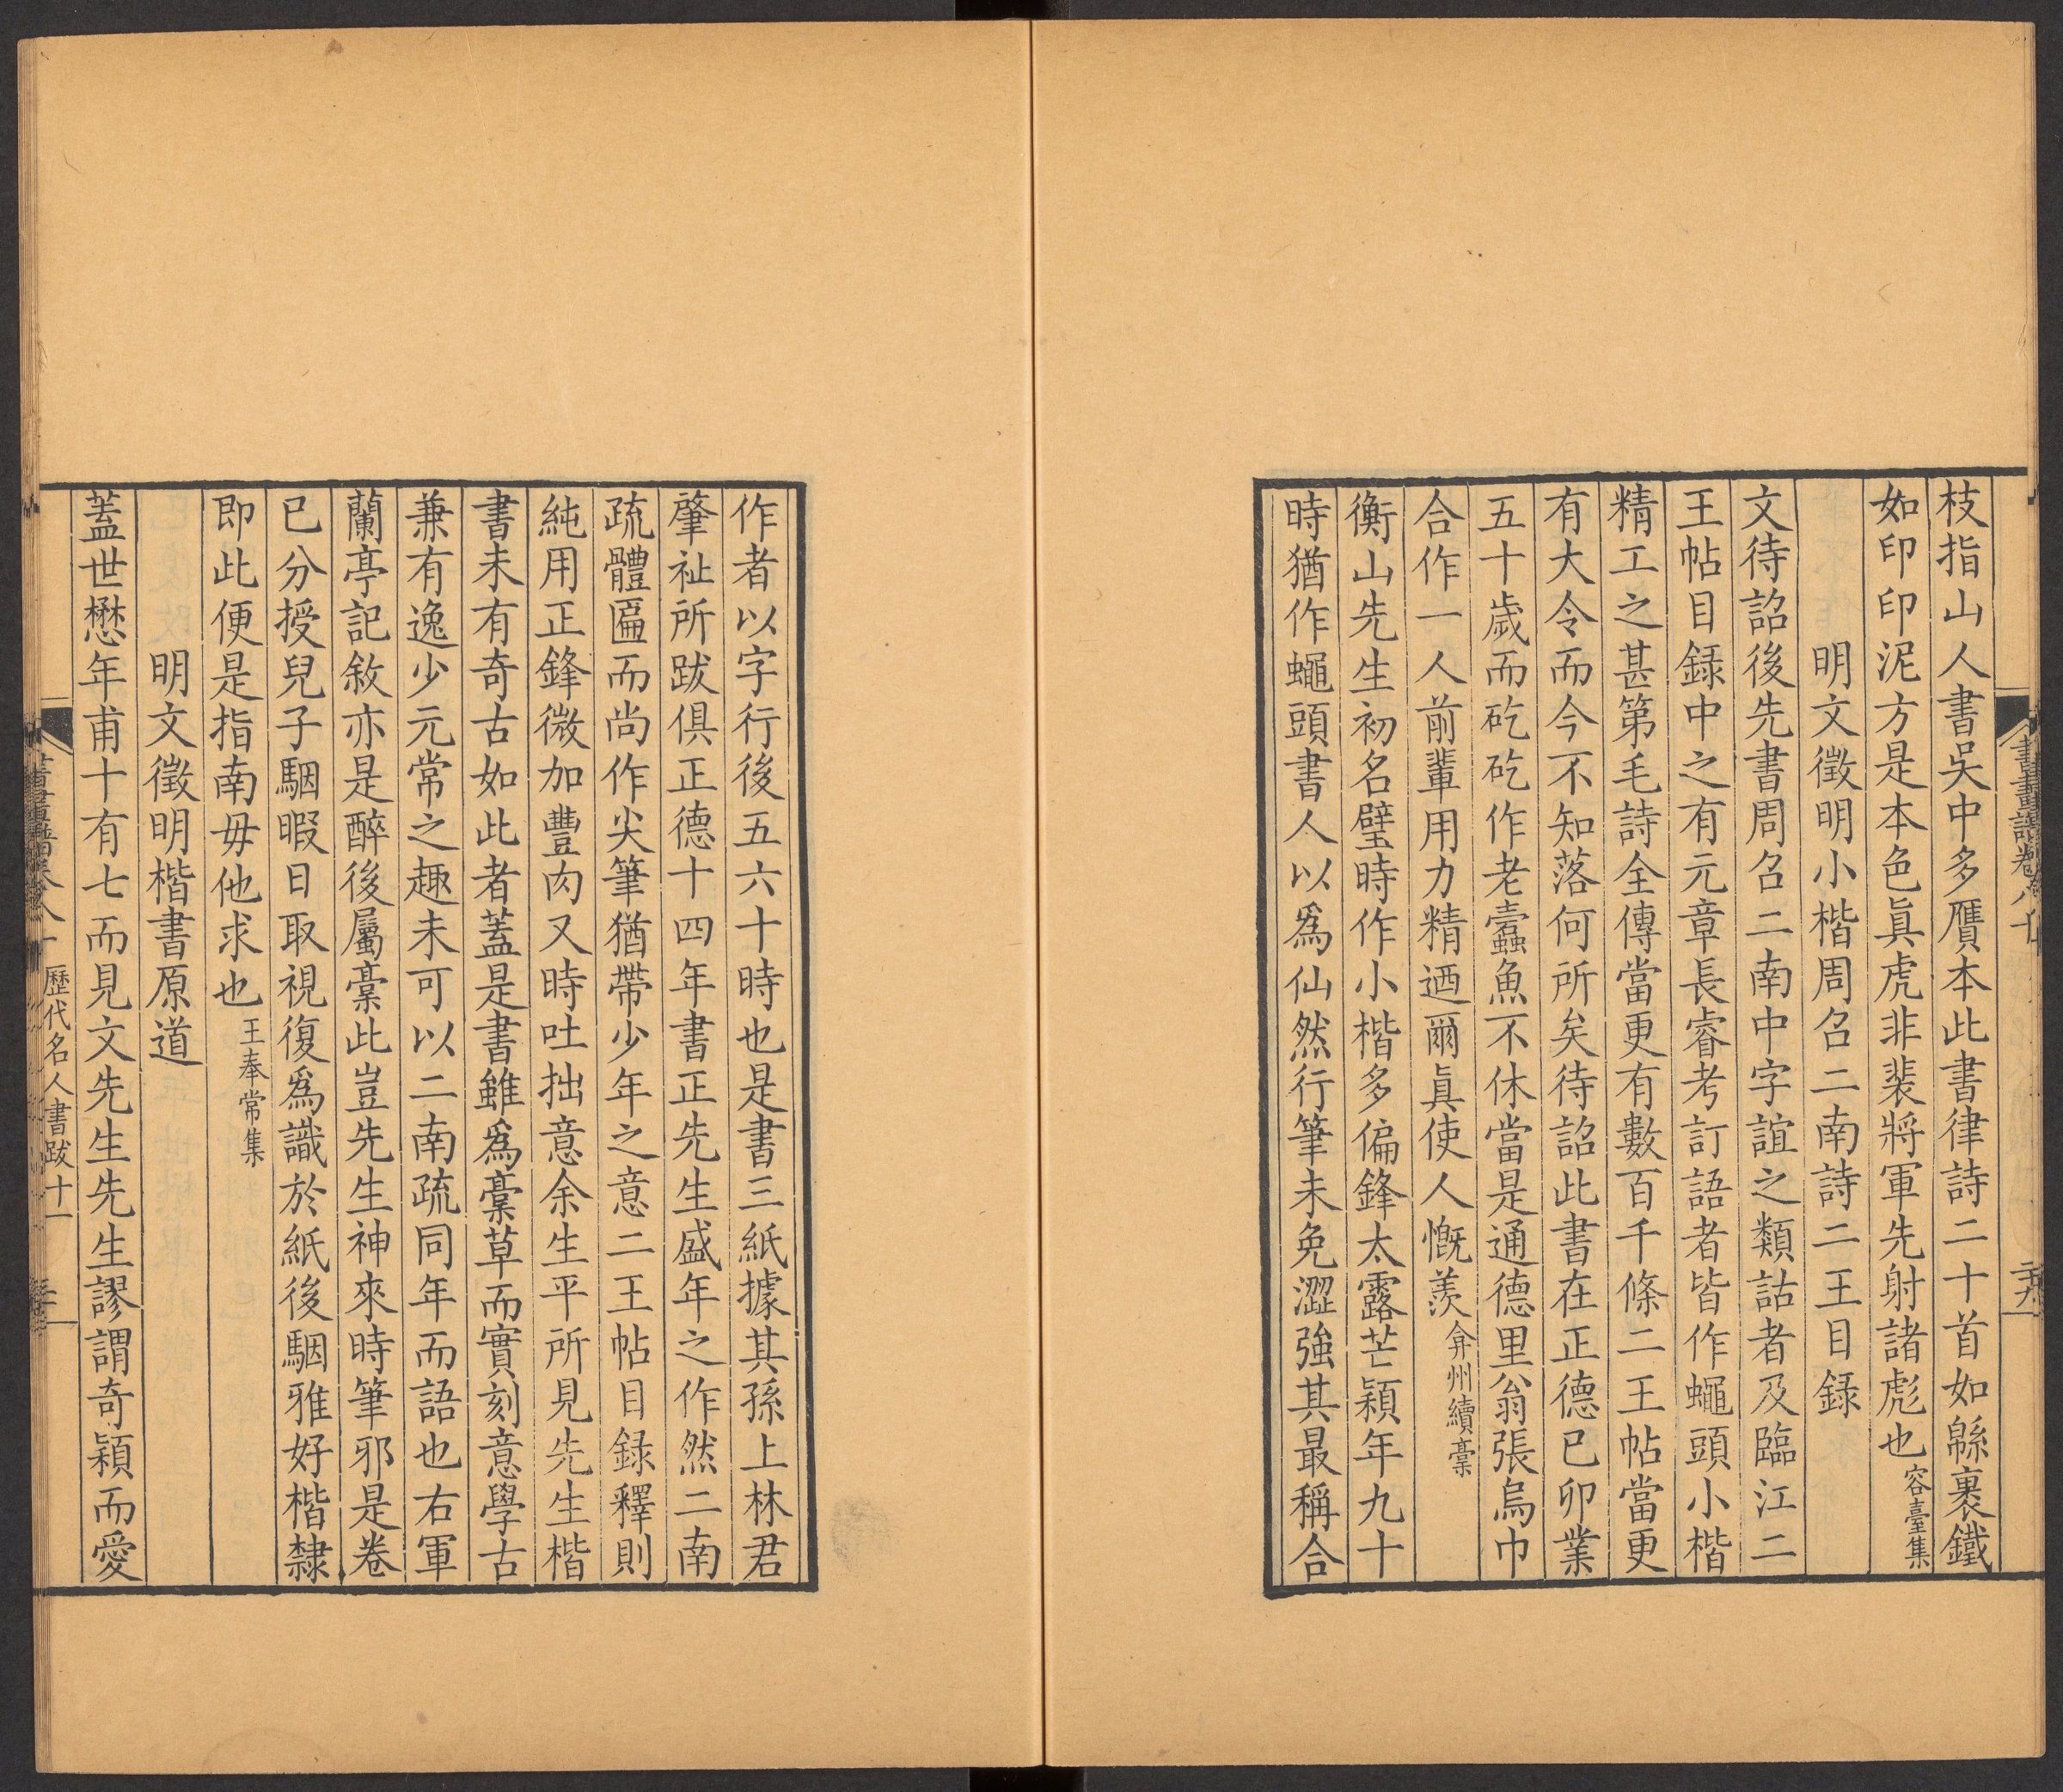 枝指山人書吳中多贋本此書律詩二十首如綿裹鐵
如印印泥方是本色眞虎非裴將軍先射諸彪也容臺集
明文徵明小楷周召二南詩二王目録
文待詔後先書周召二南中字誼之類詁者及臨江二
王帖目録中之有元章長睿考訂語者皆作蠅頭小楷
精工之甚第毛詩全傳當更有數百千條二王帖當更
有大令而今不知落何所矣待詔此書在正德己卯業
五十歲而矻矻作老蠧魚不休當是通德里翁張烏巾
合作一人前輩用力精迺爾眞使人慨羨弇州續稾
衡山先生初名壁時作小楷多偏鋒太露芒穎年九十
時猶作蠅頭書人以爲仙然行筆未免澀強其最稱合
作者以字行後五六十時也是書三紙據其孫上林君
肇祉所跋俱正德十四年書正先生盛年之作然二南
疏體匾而尚作尖筆猶帶少年之意二王帖目録釋則
純用正鋒微加豐肉又時吐拙意余生平所見先生楷
書未有奇古如此者蓋是書雖爲稾草而實刻意學古
兼有逸少元常之趣未可以二南疏同年而語也右軍
蘭亭記敘亦是醉後屬稾此豈先生神來時筆邪是卷
已分授兒子駰暇日取視復爲識於紙後駰雅好楷隸
即此便是指南毋他求也王奉常集
明文徵明楷書原道
蓋世懋年甫十有七而見文先生先生謬謂奇穎而愛
歷代名人書跋十一